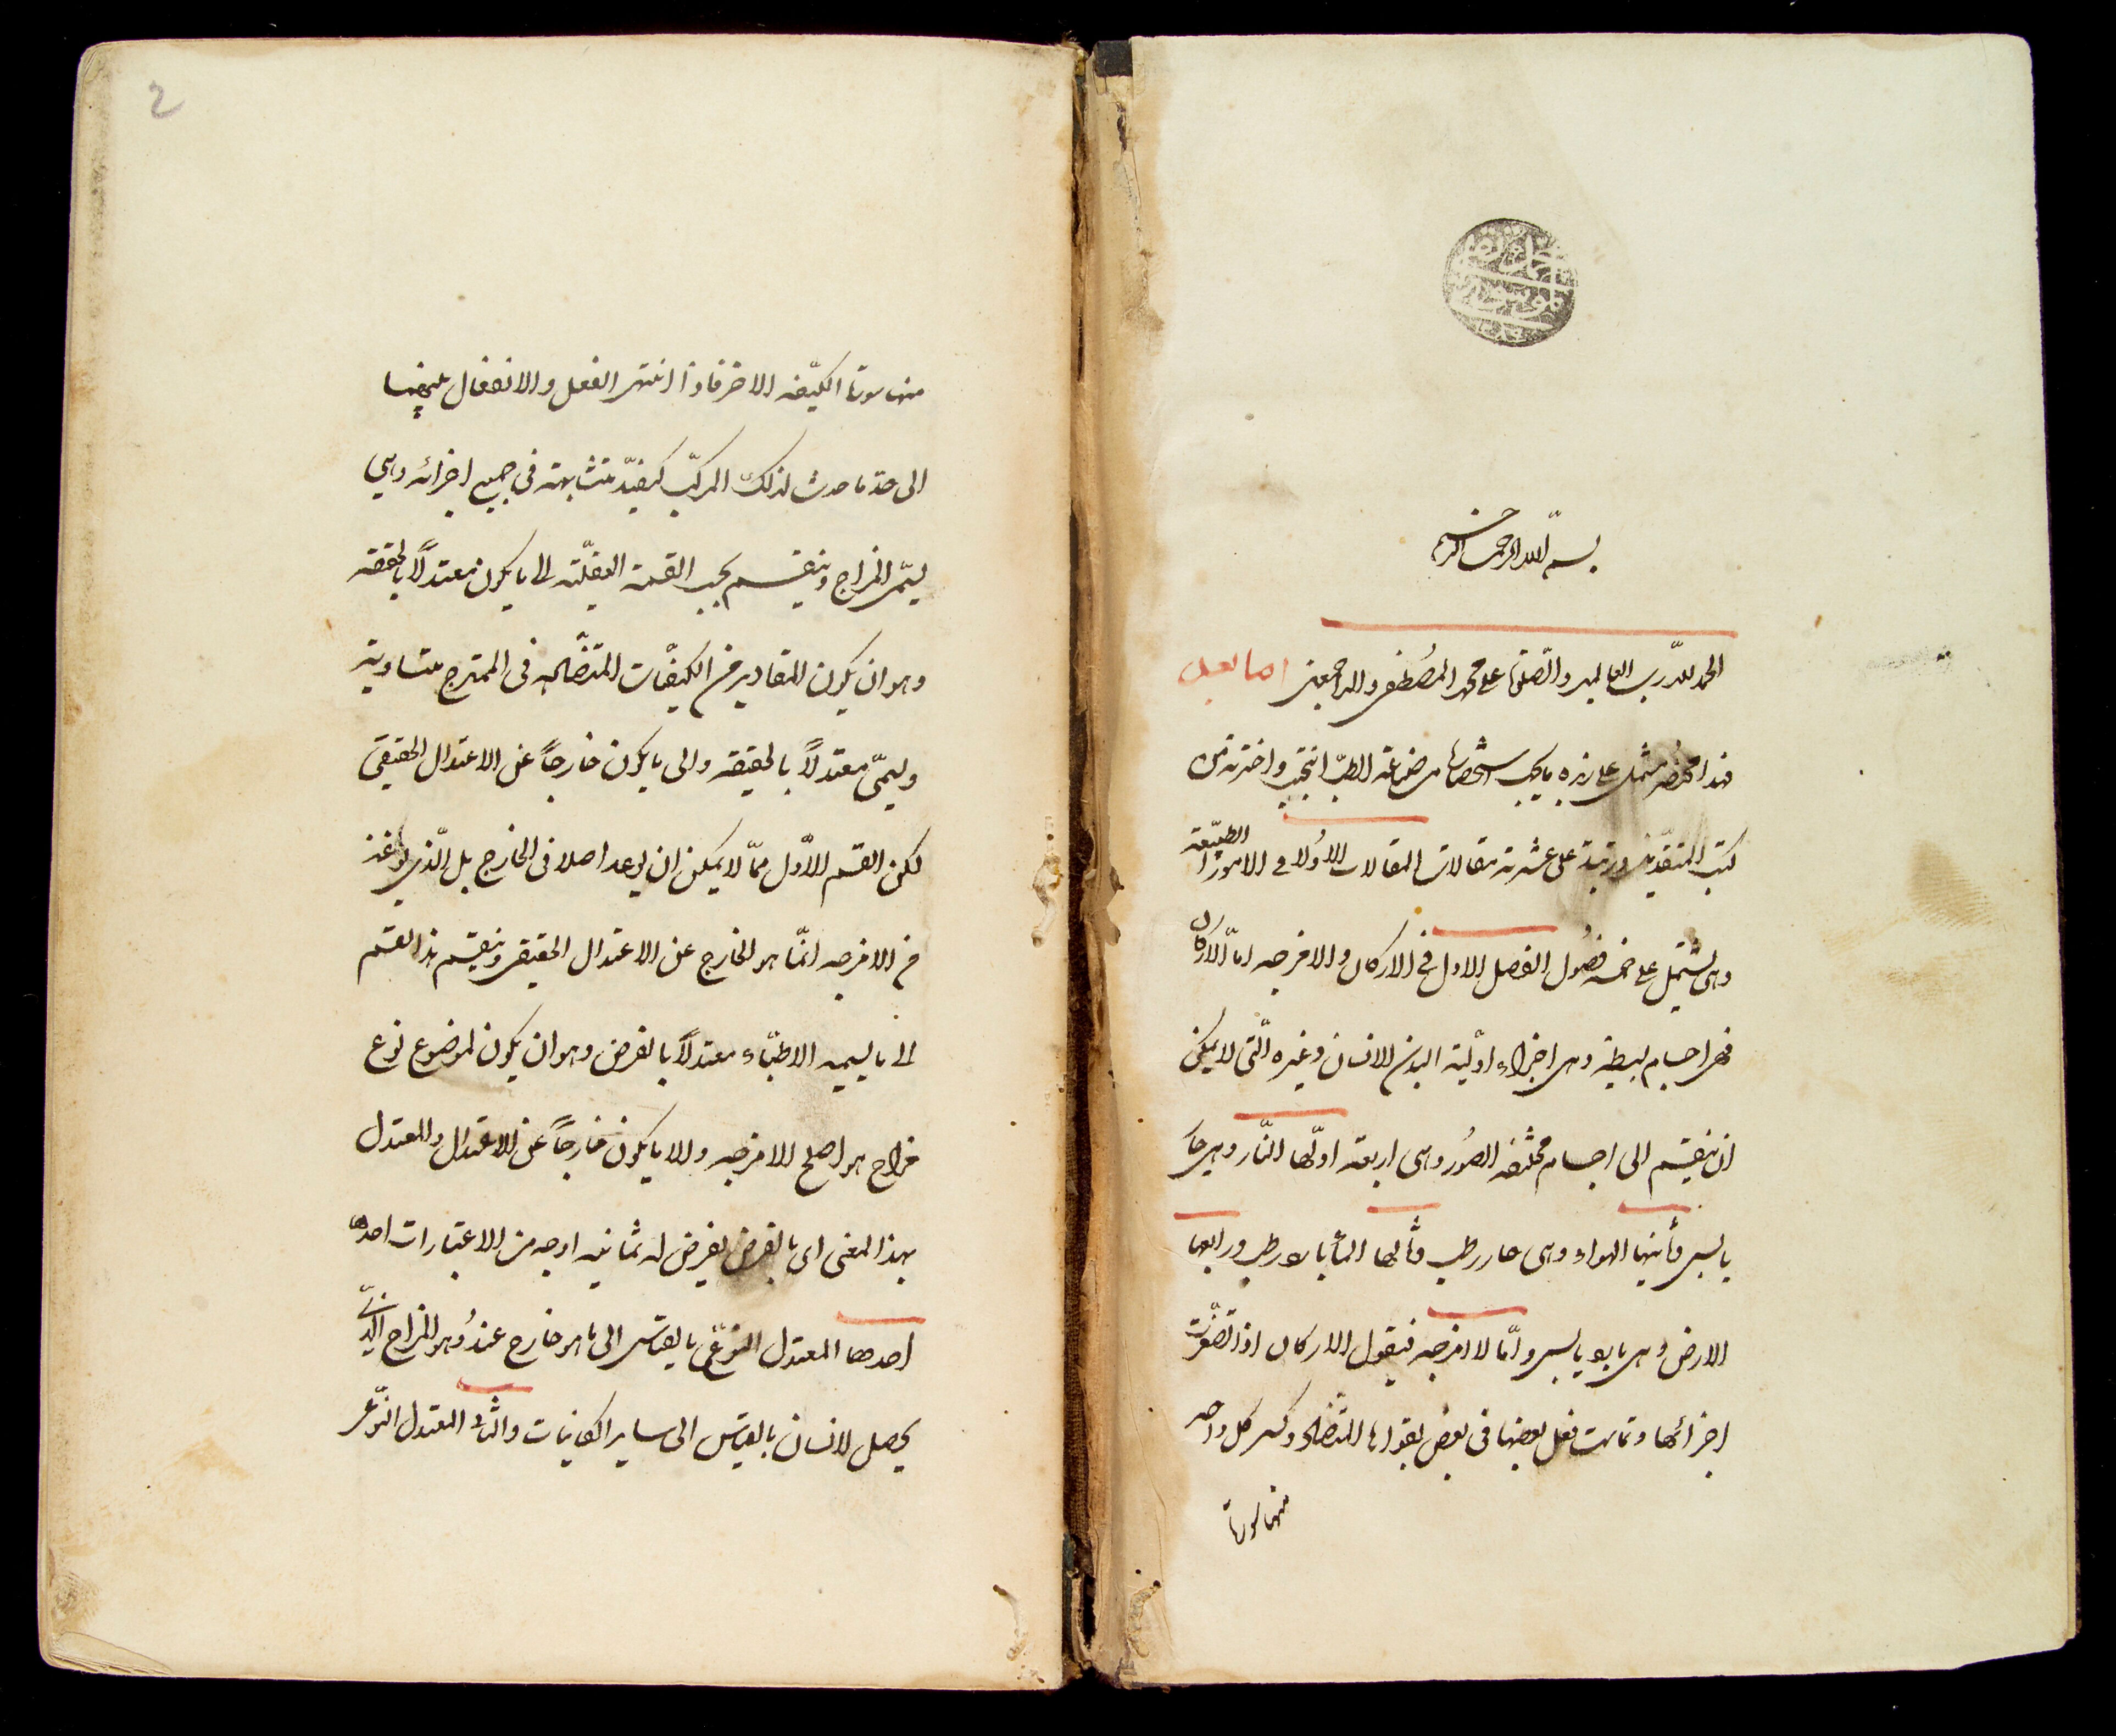 بسم الله الرحمن الرحيم
الحمد لله رب العالمين والصلوة على محمد المصطفى واله اجمعين اما بعد
فهذا مختصر مشتمل على زبدة ما يجب استحضارها من صناعة الطب انتخبته واخترته من
كتب المتقدمين ورتبته على عشرة مقالات المقالات الاولى فى الامور الطبيعة
وهى يشتمل على خمسة فصول الفصل الاول فى الاركان والامزجه اما الاركان
فهى اجسام بسيطة وهى اجزاء اولية البدن الانسان وغيره التى لا يمكن
ان ينقسم الى اجسام مختلفه الصُور وهى اربعته اولها النار وهى حار
يابس وثانيها الهواء وهى حار رطب وثالثها الماء بارد رطب ورابعها
الارض وهى بارد يابس واما لامزجه فيقول الاركان اذا تصغرت
اجزائها وتماست فعل بعضها فى بعض بقواها المتضاد وكسر كل واحد
منها سورة
2
منها سورة الكيفه الاخر فاذا انتهى الفعل والانفعال بينها
الى حد ما حدث لذلك المركب كيفية متشابهة فى جميع اجزائه وهى
يسمى المزاج وينقسم بحسب القسمة العقلية الى ما يكون معتدلاً بالحقيقه
وهو ان يكون المقادير من الكيفيات المتضاده فى الممتزج متساوية
ويسمى معتدلاً بالحقيقه والى ما يكون خارجاً عن الاعتدال الحقيقى
لكن القسم الاول مما لا يمكن ان يوجد اصلا فى الخارج بل الذى يوجد
من الامزجه انما هو الخارج عن الاعتدال الحقيقى وينقسم هذا القسم
الى ما يسميه الاطباء معتدلاً بالفرض وهو ان يكون لموضوع نوع
مزاج هو اصلح الامزجه والا ما يكون خارجاً عن الاعتدال والمعتدل
بهذا المعنى اى بالفرض يفرض له ثمانيه اوجه من الاعتبارات احدها
احدها المعتدل النوعى بالقياس الى ما هو خارج عنه وهو المزاج الذى
يحصل لانسان بالقياس الى ساير الكاينات والثانى المعتدل النوعى